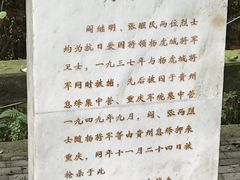 阎继明、张醒民两位烈士
均为抗日爱国将领杨虎城将军
卫士,一九三七年与杨虎城将
军同时被捕,先后被囚于贵州
息烽集中营、重庆军统集中营
一九四九年九月,阎、张两烈
士随杨将军等由贵州息烽押来
重庆,同年十一月二十四日被
枪杀于此